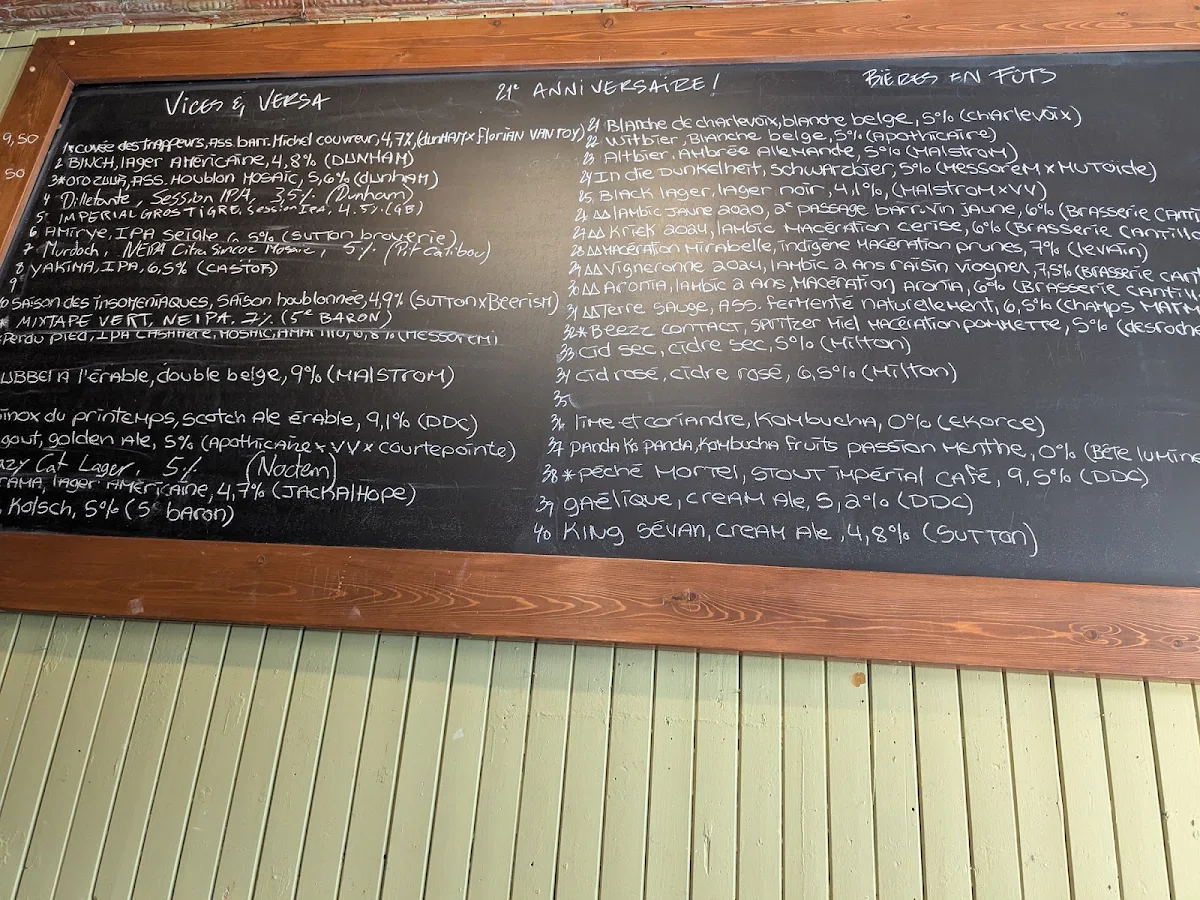 VICES & VERSA
21e ANNIVERSAIRE!
BIÈRES EN FÛTS
9,50
50
1* CUVÉE DES TRAPPEURS, ASS. BARR. MICHEL COUVREUR, 4,7% (DUNHAM x FLORIAN VAN ROY)
2 BINCH, LAGER AMÉRICAINE, 4,8% (DUNHAM)
3* ORO ZUUR, ASS. HOUBLON MOSAÏC, 5,6% (DUNHAM)
4 Dilettante, Session IPA, 3,5% (Dunham)
5 IMPERIAL GROS TIGRE, Session Ipa, 4.5% (GB)
6 AMIRYE, IPA SEIGLE, 5% (SUTTON BROUËRIE)
7 Murdoch, NEIPA Citra Simcoe Mosaic, 5% (Pit Caribou)
8 YAKIMA, IPA, 6,5% (CASTOR)
9
10 SAISON DES INSOMNIAQUES, SAISON HOUBLONNÉE, 4,9% (SUTTON x BEERISM)
* MIXTAPE VERT, NEIPA, 7% (5e BARON)
PERDU PIED, IPA CASHMERE, MOSAIC, AMARILLO, 6,8% (MESSOREM)
UBBEL À L'ÉRABLE, DOUBLE BELGE, 9% (MALSTRÖM)
INOX DU PRINTEMPS, SCOTCH ALE ÉRABLE, 9,1% (DDC)
GOUT, GOLDEN ALE, 5% (APOTHICAIRE x VV x COURTEPOINTE)
AZY Cat Lager, 5% (Noctem)
RAMA, LAGER AMÉRICAINE, 4,7% (JACKALHOPE)
, KÖLSCH, 5% (5e BARON)
21 BLANCHE DE CHARLEVOIX, BLANCHE BELGE, 5% (CHARLEVOIX)
22 WITBIER, BLANCHE BELGE, 5% (APOTHICAIRE)
23 ALTBIER, AMBRÉE ALLEMANDE, 5% (MALSTROM)
24 IN DIE DUNKELHEIT, SCHWARZBIER, 5% (MESSOREM x MUTOÏDE)
25 BLACK LAGER, LAGER NOIR, 4,1%, (MALSTROM x VV)
26 ΔΔ LAMBIC JAUNE 2020, 2e PASSAGE BARR. VIN JAUNE, 6% (BRASSERIE CANTI
27 ΔΔ KRIEK 2024, LAMBIC MACÉRATION CERISE, 6% (BRASSERIE CANTILLO
28 ΔΔ MACÉRATION MIRABELLE, INDIGÈNE MACÉRATION PRUNES, 7% (LEVAIN)
29 ΔΔ VIGNERONNE 2024, LAMBIC 2 ANS RAISIN VIOGNER, 7,5% (BRASSERIE CANT
30 ΔΔ ARONIA, LAMBIC 2 ANS, MACÉRATION ARONIA, 6% (BRASSERIE CANTIL
31 ΔΔ TERRE SAUGE, ASS. FERMENTÉ NATURELLEMENT, 6,5% (CHAMPS
32* BEEZZ CONTACT, SPRITZER MIEL MACÉRATION POMMETTE, 5% (DESROCHE
33 CID SEC, CIDRE SEC, 5% (MILTON)
34 CID ROSÉ, CIDRE ROSÉ, 6,5% (MILTON)
35
36 LIME ET CORIANDRE, KOMBUCHA, 0% (EKORCE)
37 PANDA KO PANDA, KOMBUCHA FRUITS PASSION MENTHE, 0% (BÊTE LUMINE
38 * PÉCHÉ MORTEL, STOUT IMPÉRIAL CAFÉ, 9,5% (DDC)
39 GAÉLIQUE, CREAM ALE, 5,2% (DDC)
40 KING SÉVAN, CREAM ALE, 4,8% (SUTTON)